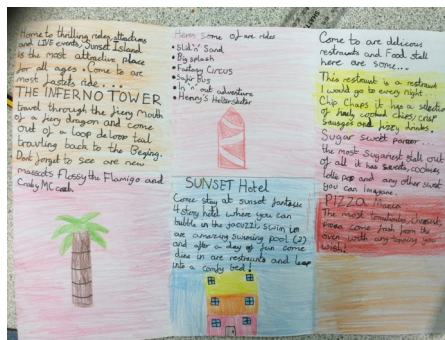 Home to thrilling rides, attractions
and LIVE events, Sunset Island
is the most attractive place
for all ages. Come to are
most fastets ride...
THE INFERNO TOWER
travel through the firey mouth
of a firey dragon and come
out of a loop deloop tail
travling back to the Beging.
Dont forget to see are new
mascots Flossy the Flamigo and
Craby MC
Here some of are rides
• Slid'n' Sand
• Big splash
• Fantasy Circus
• Safir Bus
• In 'n' out adventure
• Henery's Helterskelter
SUNSET Hotel
Come stay at sunset fantasic
4 story hotel where you can
bubble in the jacuzzi, swim in
are amazing swimming pool (2)
and after a day of fun come
dine in are restraunts and leap
into a comfy bed!
Come to are delicous
restraunts and Food stall
here are some...
This restraunt is a restraunt
I would go to every night.
Chip Chaps it has a selection
of cooked chips, crisp
sausages and fizzy drinks.
Sugar sweet parlor...
the most Sugariest stall out
of all it has sweets, cookies
lollie pop and any other sweet
you can Imagine.
PIZZA
The most tomatoiest, cheesiest,
pizza come fresh from the
oven with any topping you
wish!